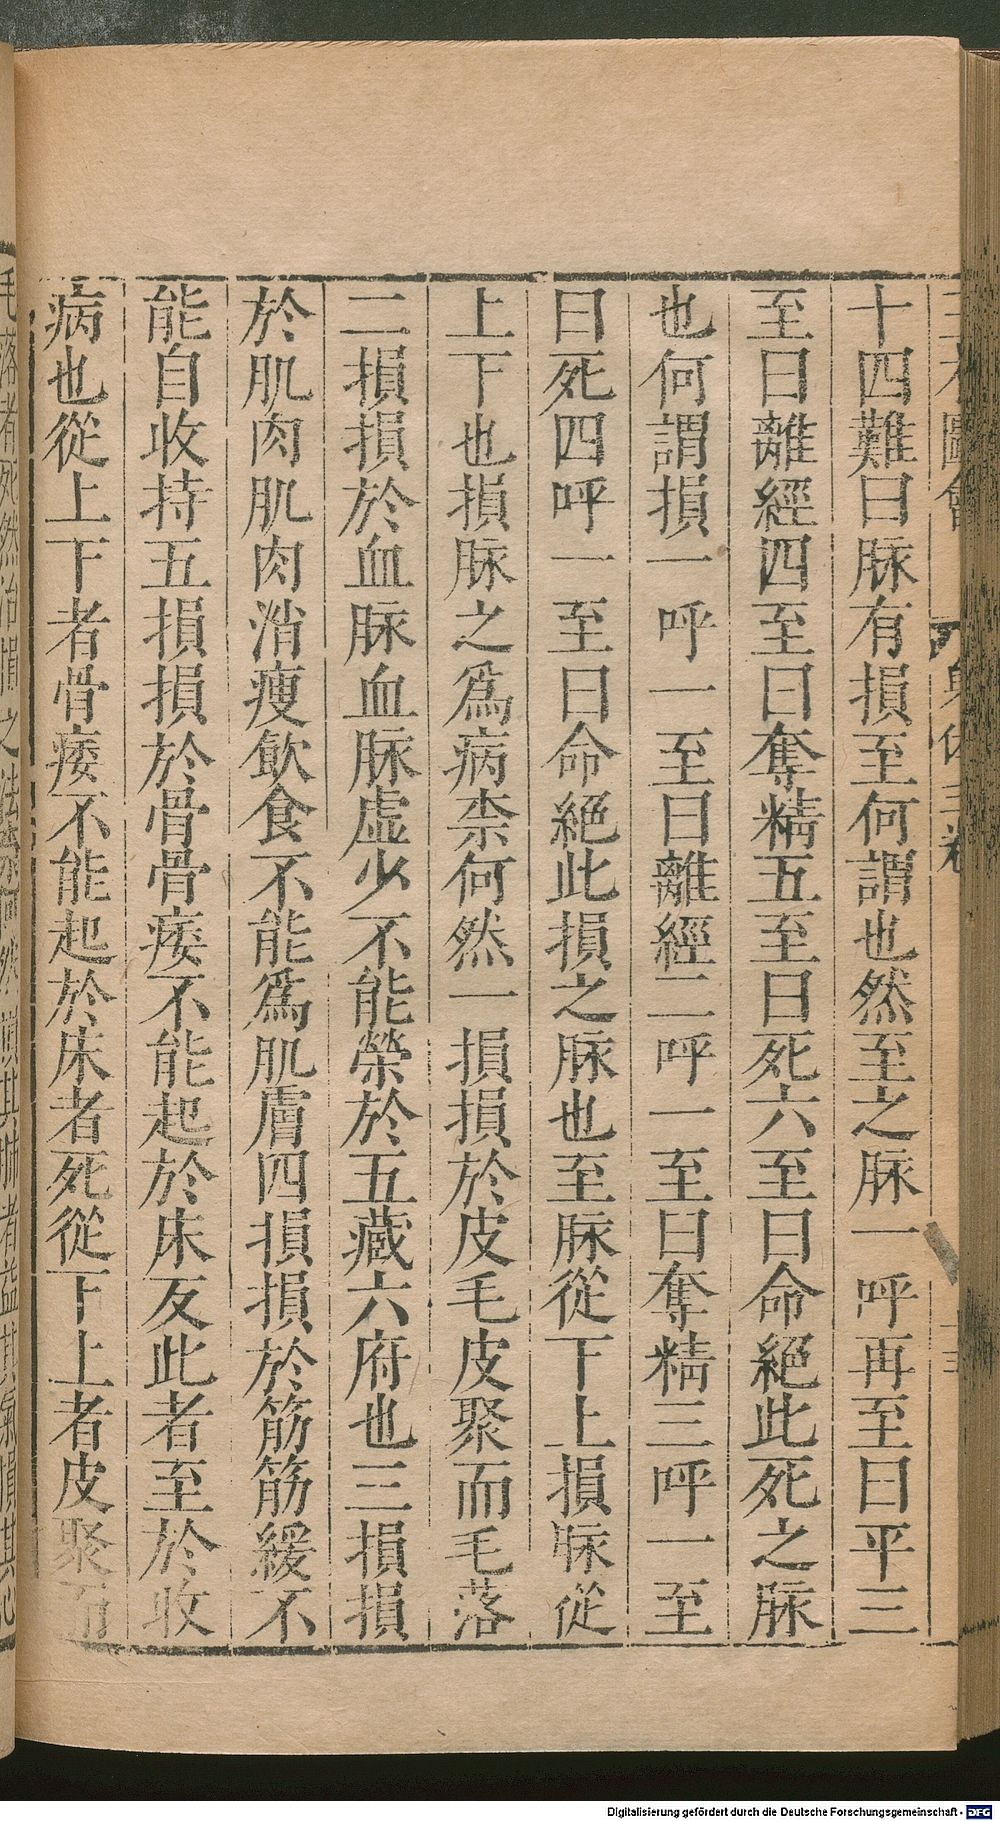 十四難曰脉有損至何謂也然至之脉一呼再至曰平三
至曰離經四至曰奪精五至曰死六至曰命絕此死之脉
也何謂損一呼一至曰離經二呼一至曰奪精三呼一至
曰死四呼一至曰命絕此損之脉也至脉從下上損脉從
上下也損脉之爲病柰何然一損損於皮毛皮聚而毛落
二損損於血脉血脉虛少不能榮於五藏六府也三損損
於肌肉肌肉消瘦飲食不能爲肌膚四損損於筋筋緩不
能自收持五損損於骨骨痿不能起於床反此者至於收
病也從上下者骨痿不能起於床者死從下上者皮聚而
毛落者死然治損之法柰何然損其肺者益其氣損其心
Digitalisierung gefördert durch die Deutsche Forschungsgemeinschaft - DFG